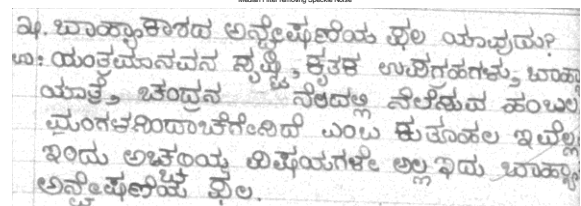 Median Filter Removing Speckle Noise
೫. ಬಾಹ್ಯಾಕಾಶದ ಅನ್ವೇಷಣೆಯ ಫಲ ಯಾವುದು?
ಉ: ಯಂತ್ರಮಾನವನ ಸೃಷ್ಟಿ, ಕೃತಕ ಉಪಗ್ರಹಗಳು, ಬಾಹ್ಯಾ
ಯಾತ್ರೆ, ಚಂದ್ರನ ನೆಲದಲ್ಲಿ ನೆಲೆಸುವ ಹಂಬಲ
ಮಂಗಳನಿಂದಾಚೆಗೇನಿದೆ ಎಂಬ ಕುತೂಹಲ ಇವೆಲ್ಲ
ಇಂದು ಅಚ್ಚರಿಯ ವಿಷಯಗಳೇ ಅಲ್ಲ ಇದು ಬಾಹ್ಯಾ
ಅನ್ವೇಷಣೆಯ ಫಲ.